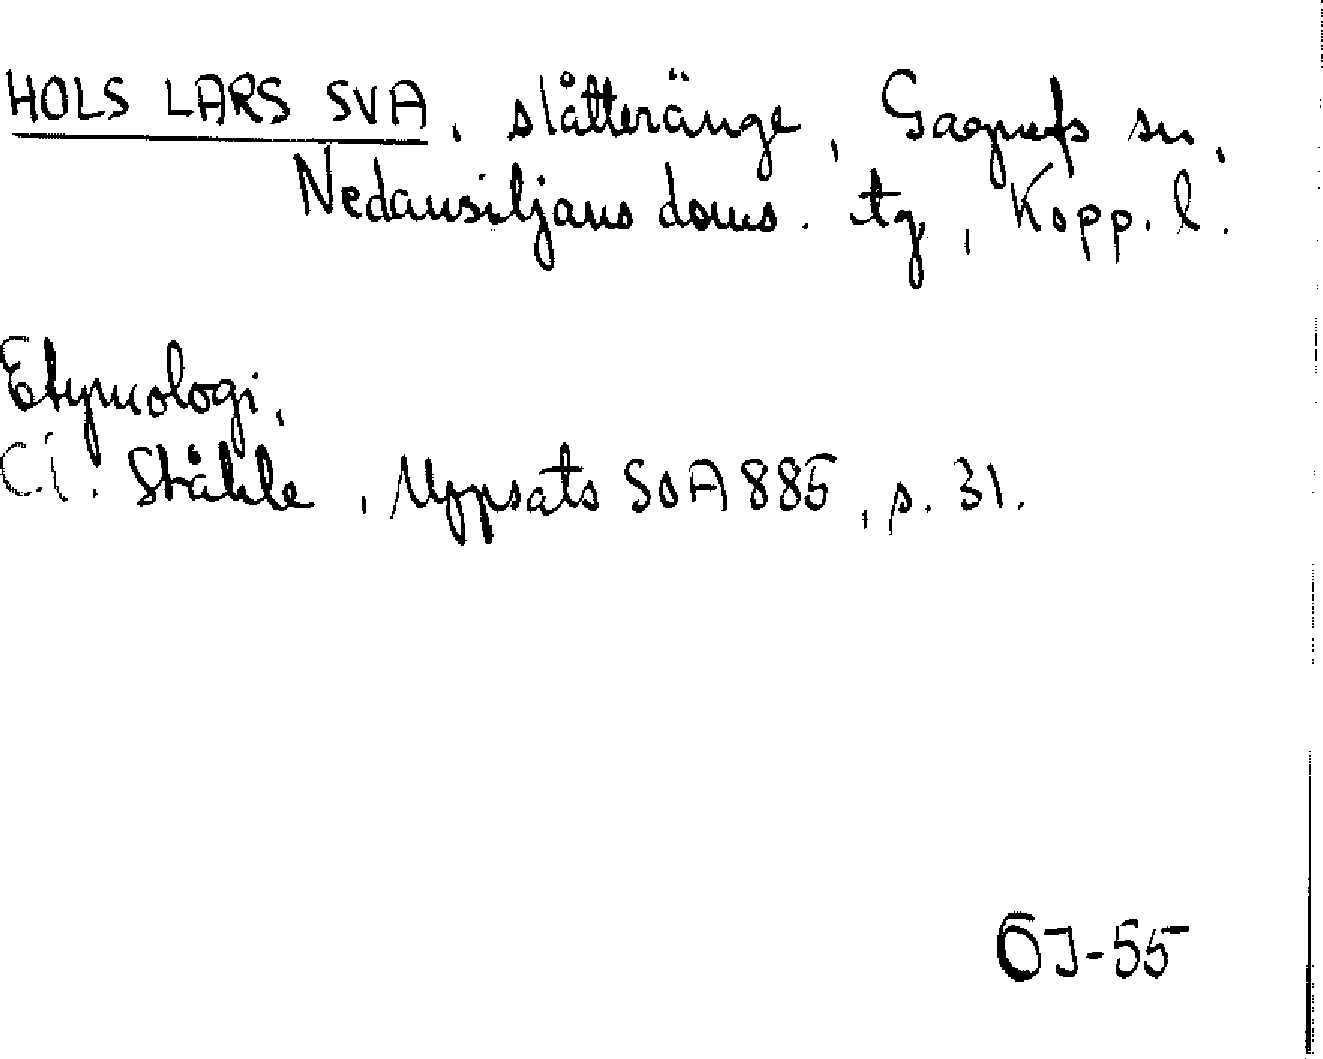 HOLS LARS SVA, slåtteränge, Gagnefs sn,
Nedansiljans doms. tg, Kopp. l.
Etymologi,
C.I. Ståhle, Uppsats SOA 885, s. 31.
ÖJ-55